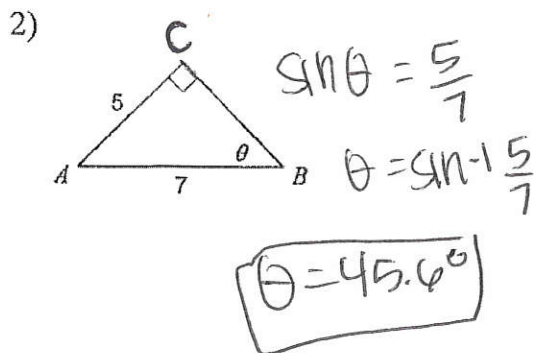 2)
C
5
A
7
θ
B
sin θ = 5/7
θ = sin-1 5/7
θ = 45.6°